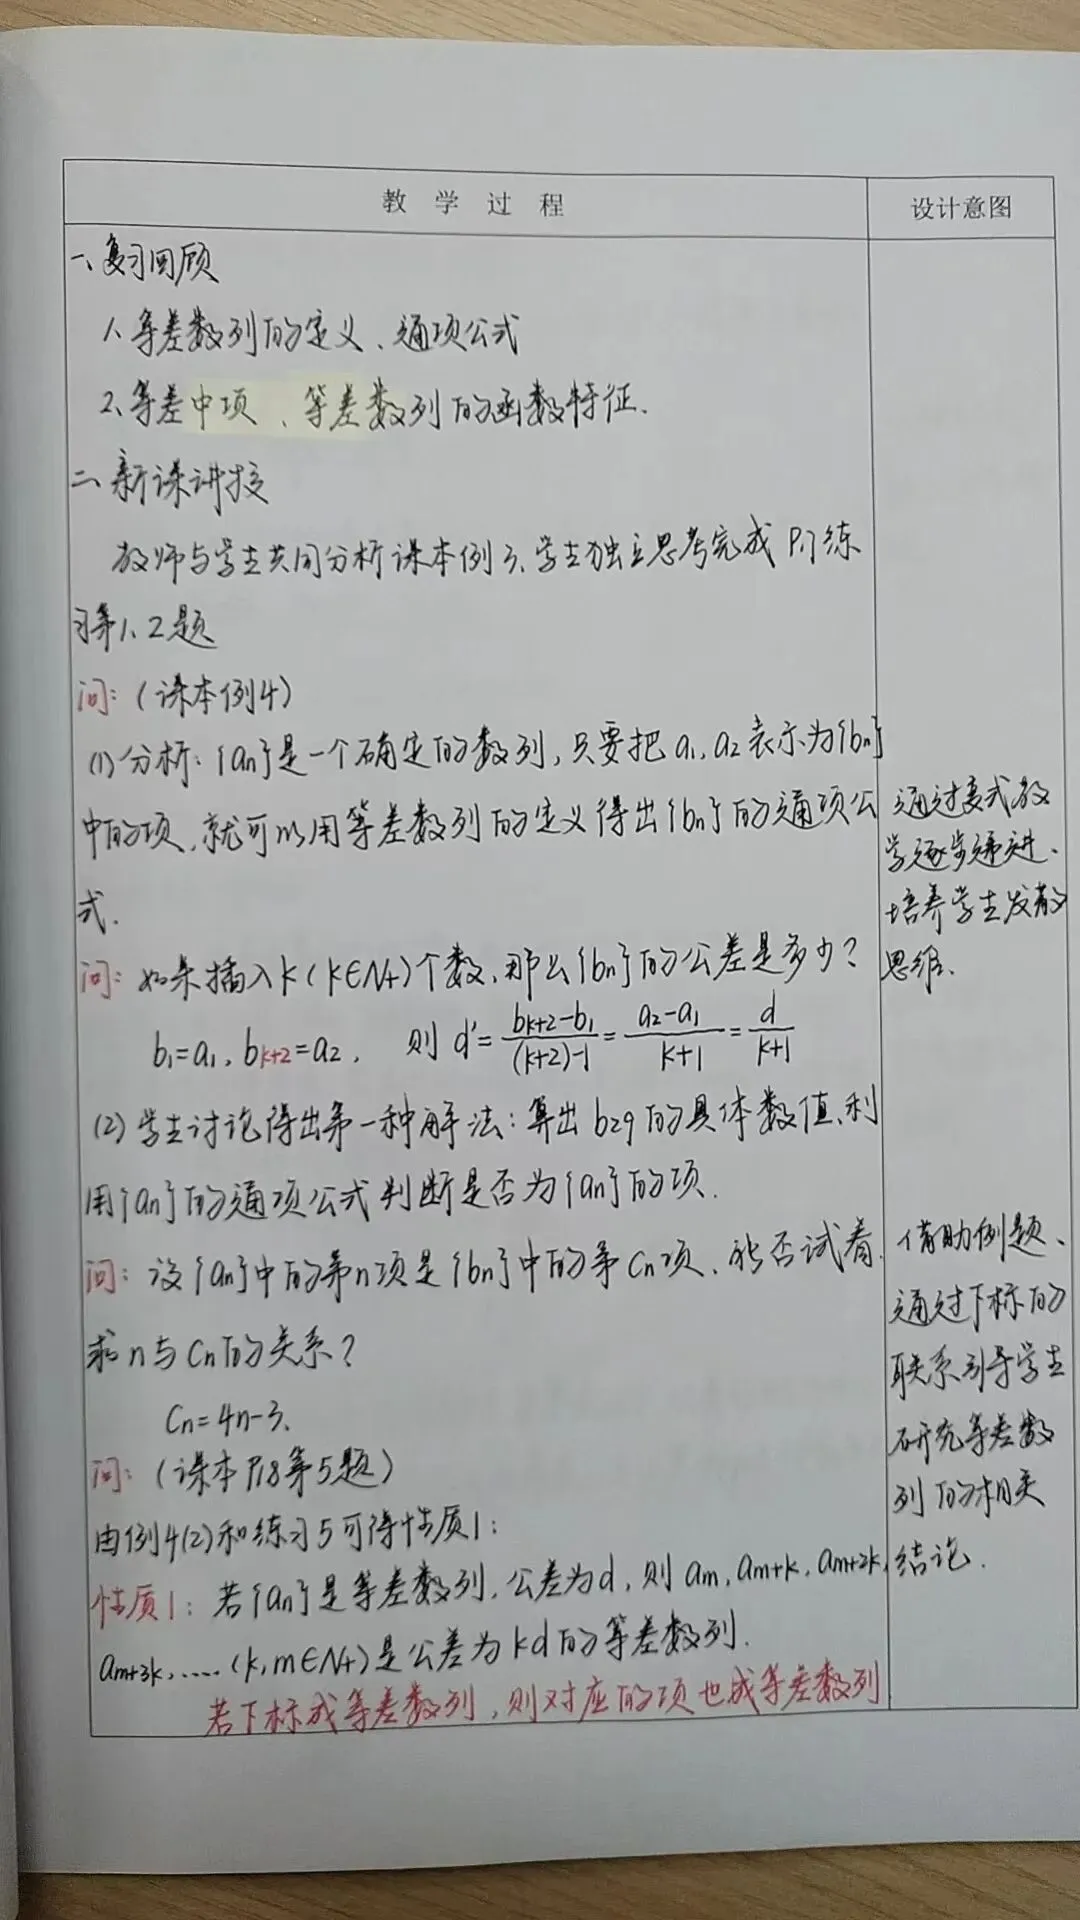 教 学 过 程
设计意图
一、复习回顾
1、等差数列的定义、通项公式
2、等差中项、等差数列的函数特征.
二、新课讲授
教师与学生共同分析课本例3，学生独立思考完成 P17练
习第1、2题
问：（课本例4）
(1) 分析：{an}是一个确定的数列，只要把 a1, a2 表示为{bn}
中的项，就可以用等差数列的定义得出{bn}的通项公
式.
问：如果插入k（k∈N+）个数，那么{bn}的公差是多少？
b1=a1, bk+2=a2, 则 d'=(bk+2-b1)/((k+2)-1)=(a2-a1)/(k+1)=d/(k+1)
(2) 学生讨论得出第一种解法：算出 b29 的具体数值，利
用{an}的通项公式判断是否为{an}的项.
问：设{an}中的第n项是{bn}中的第Cn项，能否试着
求n与Cn的关系？
Cn=4n-3.
问：（课本P18第5题）
由例4(2)和练习5可得性质1：
性质1：若{an}是等差数列，公差为d，则 am, am+k, am+2k,
am+3k, ..... (k, m∈N+)是公差为kd的等差数列.
若下标成等差数列，则对应的项也成等差数列
通过变式教
学逐步递进、
培养学生发散
思维.
借助例题、
通过下标的
联系引导学生
研究等差数
列的相关
结论.